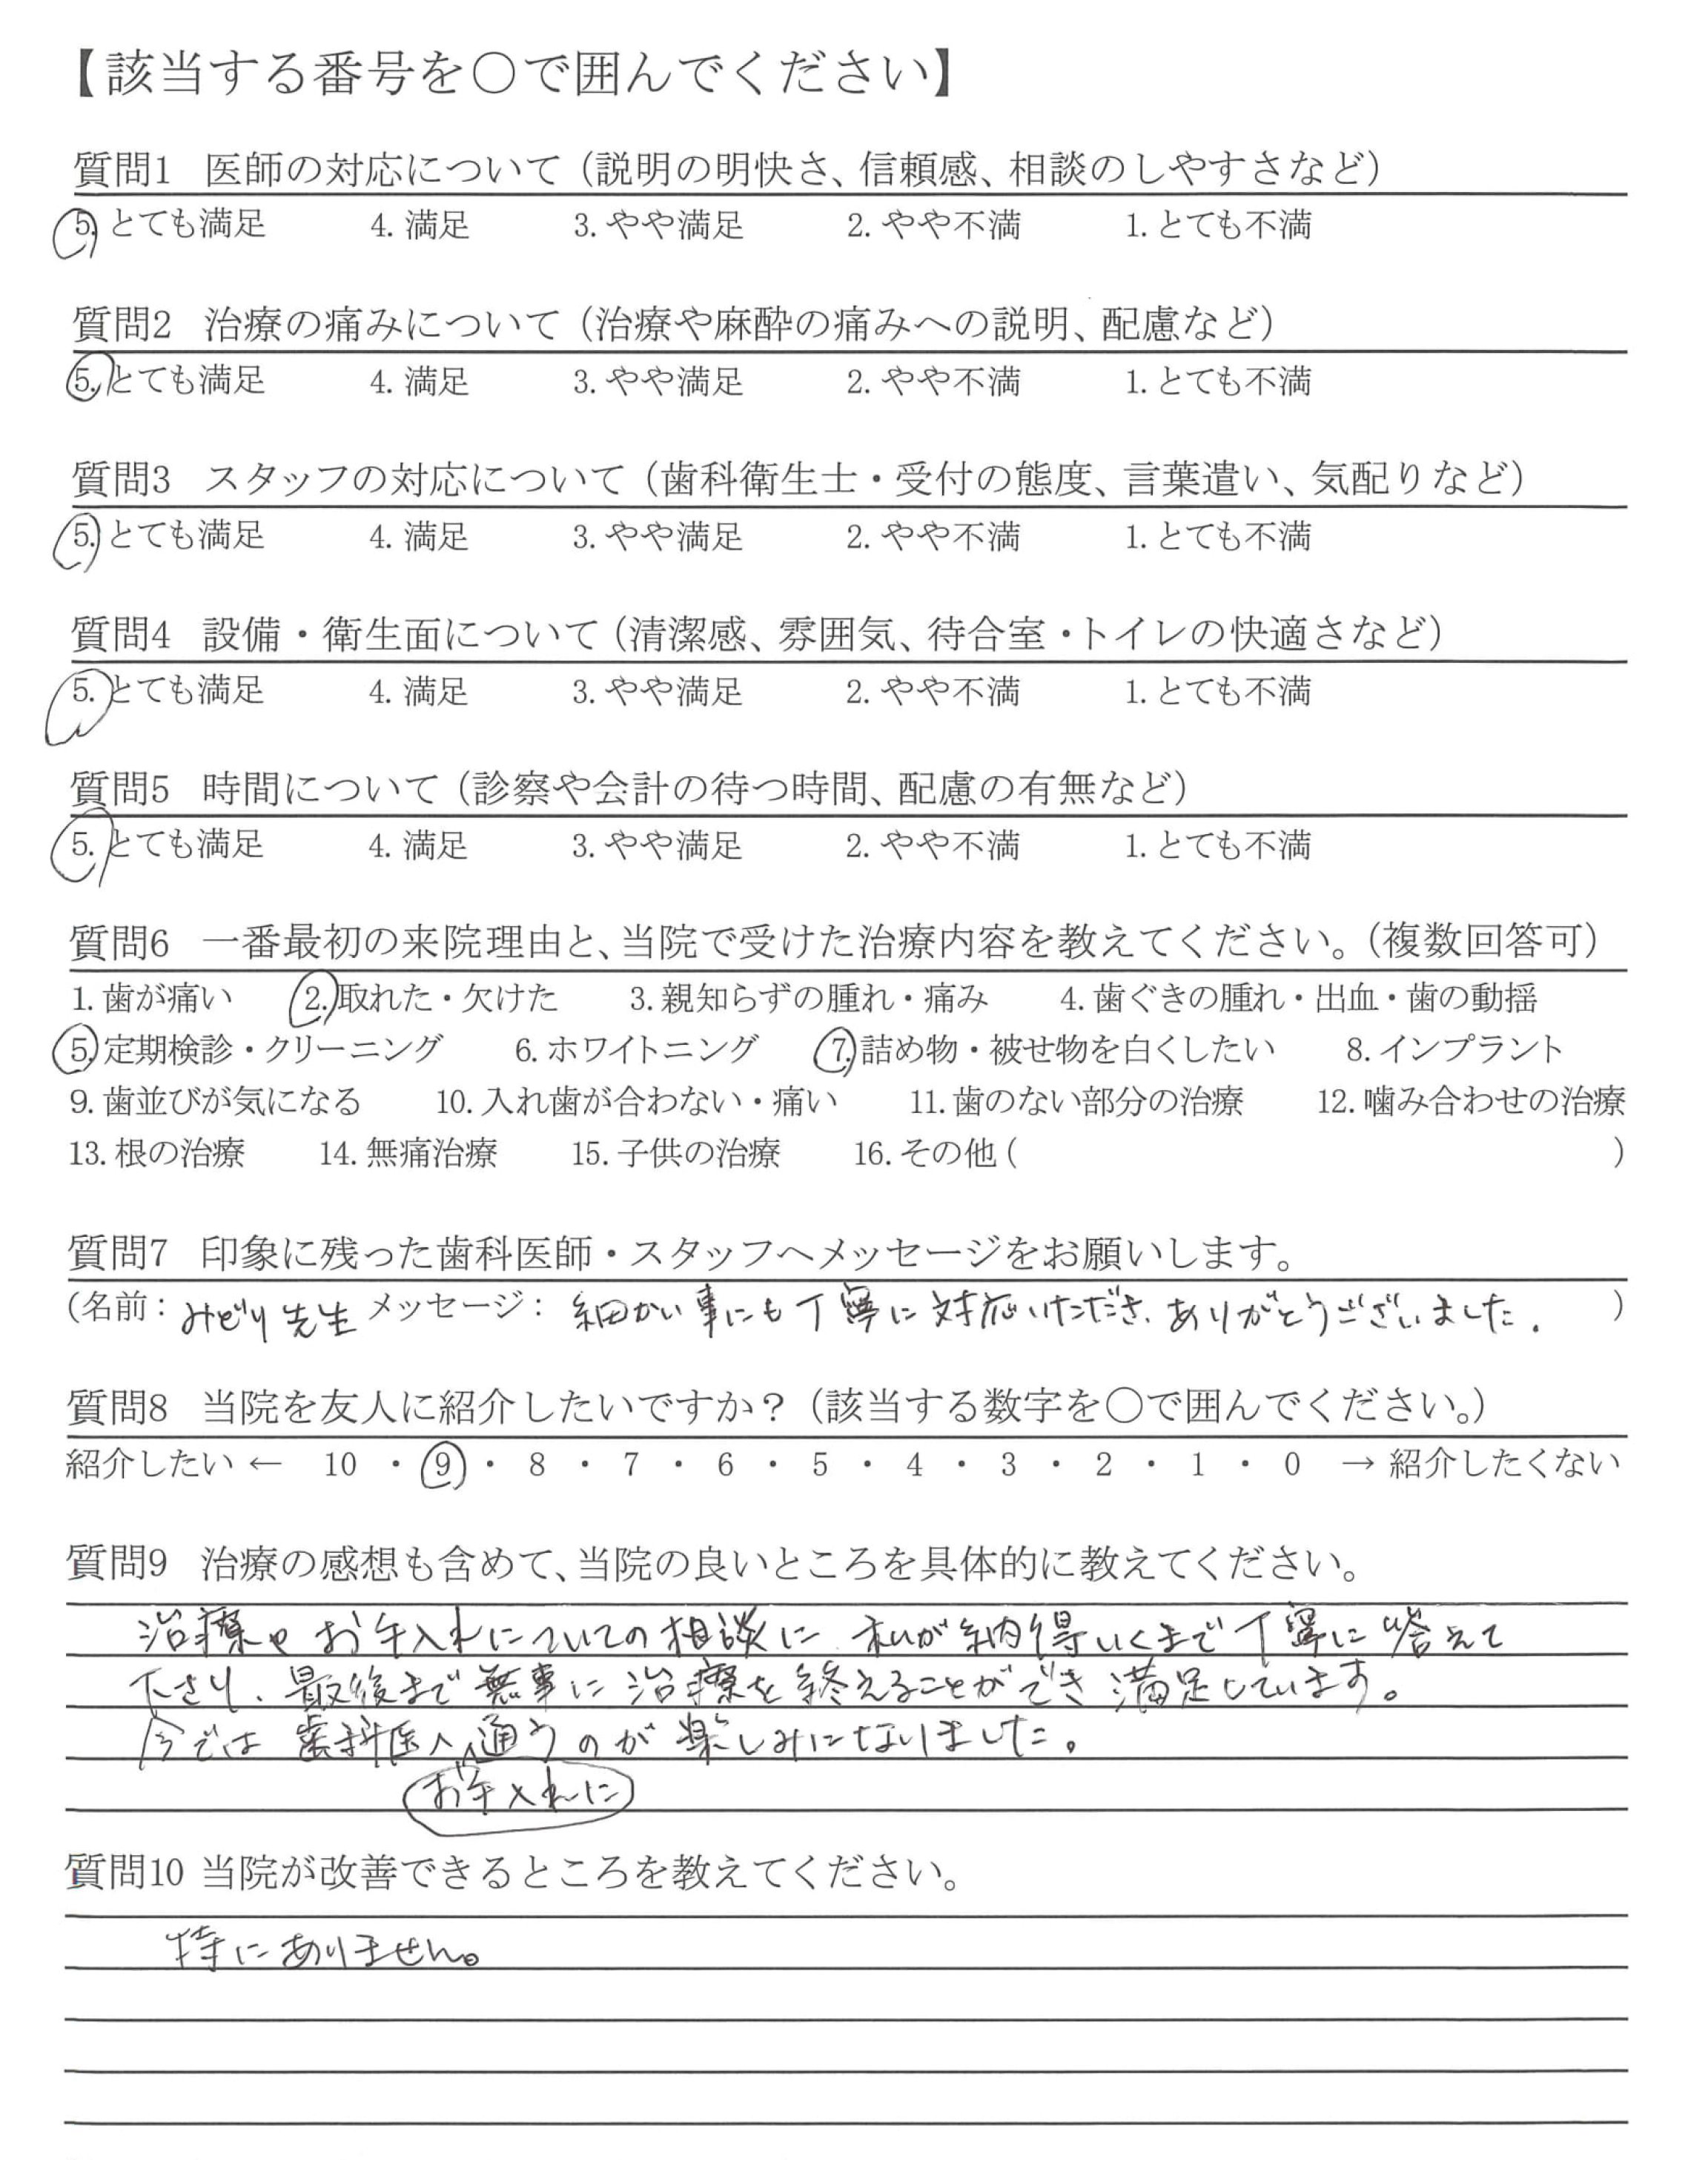 【該当する番号を〇で囲んでください】
質問1 医師の対応について（説明の明快さ、信頼感、相談のしやすさなど）
5. とても満足 4. 満足 3. やや満足 2. やや不満 1. とても不満
質問2 治療の痛みについて（治療や麻酔の痛みへの説明、配慮など）
5. とても満足 4. 満足 3. やや満足 2. やや不満 1. とても不満
質問3 スタッフの対応について（歯科衛生士・受付の態度、言葉遣い、気配りなど）
5. とても満足 4. 満足 3. やや満足 2. やや不満 1. とても不満
質問4 設備・衛生面について（清潔感、雰囲気、待合室・トイレの快適さなど）
5. とても満足 4. 満足 3. やや満足 2. やや不満 1. とても不満
質問5 時間について（診察や会計の待つ時間、配慮の有無など）
5. とても満足 4. 満足 3. やや満足 2. やや不満 1. とても不満
質問6 一番最初の来院理由と、当院で受けた治療内容を教えてください。（複数回答可）
1. 歯が痛い 2. 取れた・欠けた 3. 親知らずの腫れ・痛み 4. 歯ぐきの腫れ・出血・歯の動揺
5. 定期検診・クリーニング 6. ホワイトニング 7. 詰め物・被せ物を白くしたい 8. インプラント
9. 歯並びが気になる 10. 入れ歯が合わない・痛い 11. 歯のない部分の治療 12. 噛み合わせの治療
13. 根の治療 14. 無痛治療 15. 子供の治療 16. その他 ( )
質問7 印象に残った歯科医師・スタッフへメッセージをお願いします。
(名前： みどり先生 メッセージ： 細かい事にも丁寧に対応いただき、ありがとうございました. )
質問8 当院を友人に紹介したいですか？（該当する数字を〇で囲んでください。）
紹介したい ← 10 ・ 9 ・ 8 ・ 7 ・ 6 ・ 5 ・ 4 ・ 3 ・ 2 ・ 1 ・ 0 → 紹介したくない
質問9 治療の感想も含めて、当院の良いところを具体的に教えてください。
治療やお手入れについての相談に 私が納得いくまで丁寧に答えて
下さり、最後まで無事に治療を終えることができ満足しています。
今では歯科医へ通うのが楽しみになりました。
お手入れに
質問10 当院が改善できるところを教えてください。
特にありません。